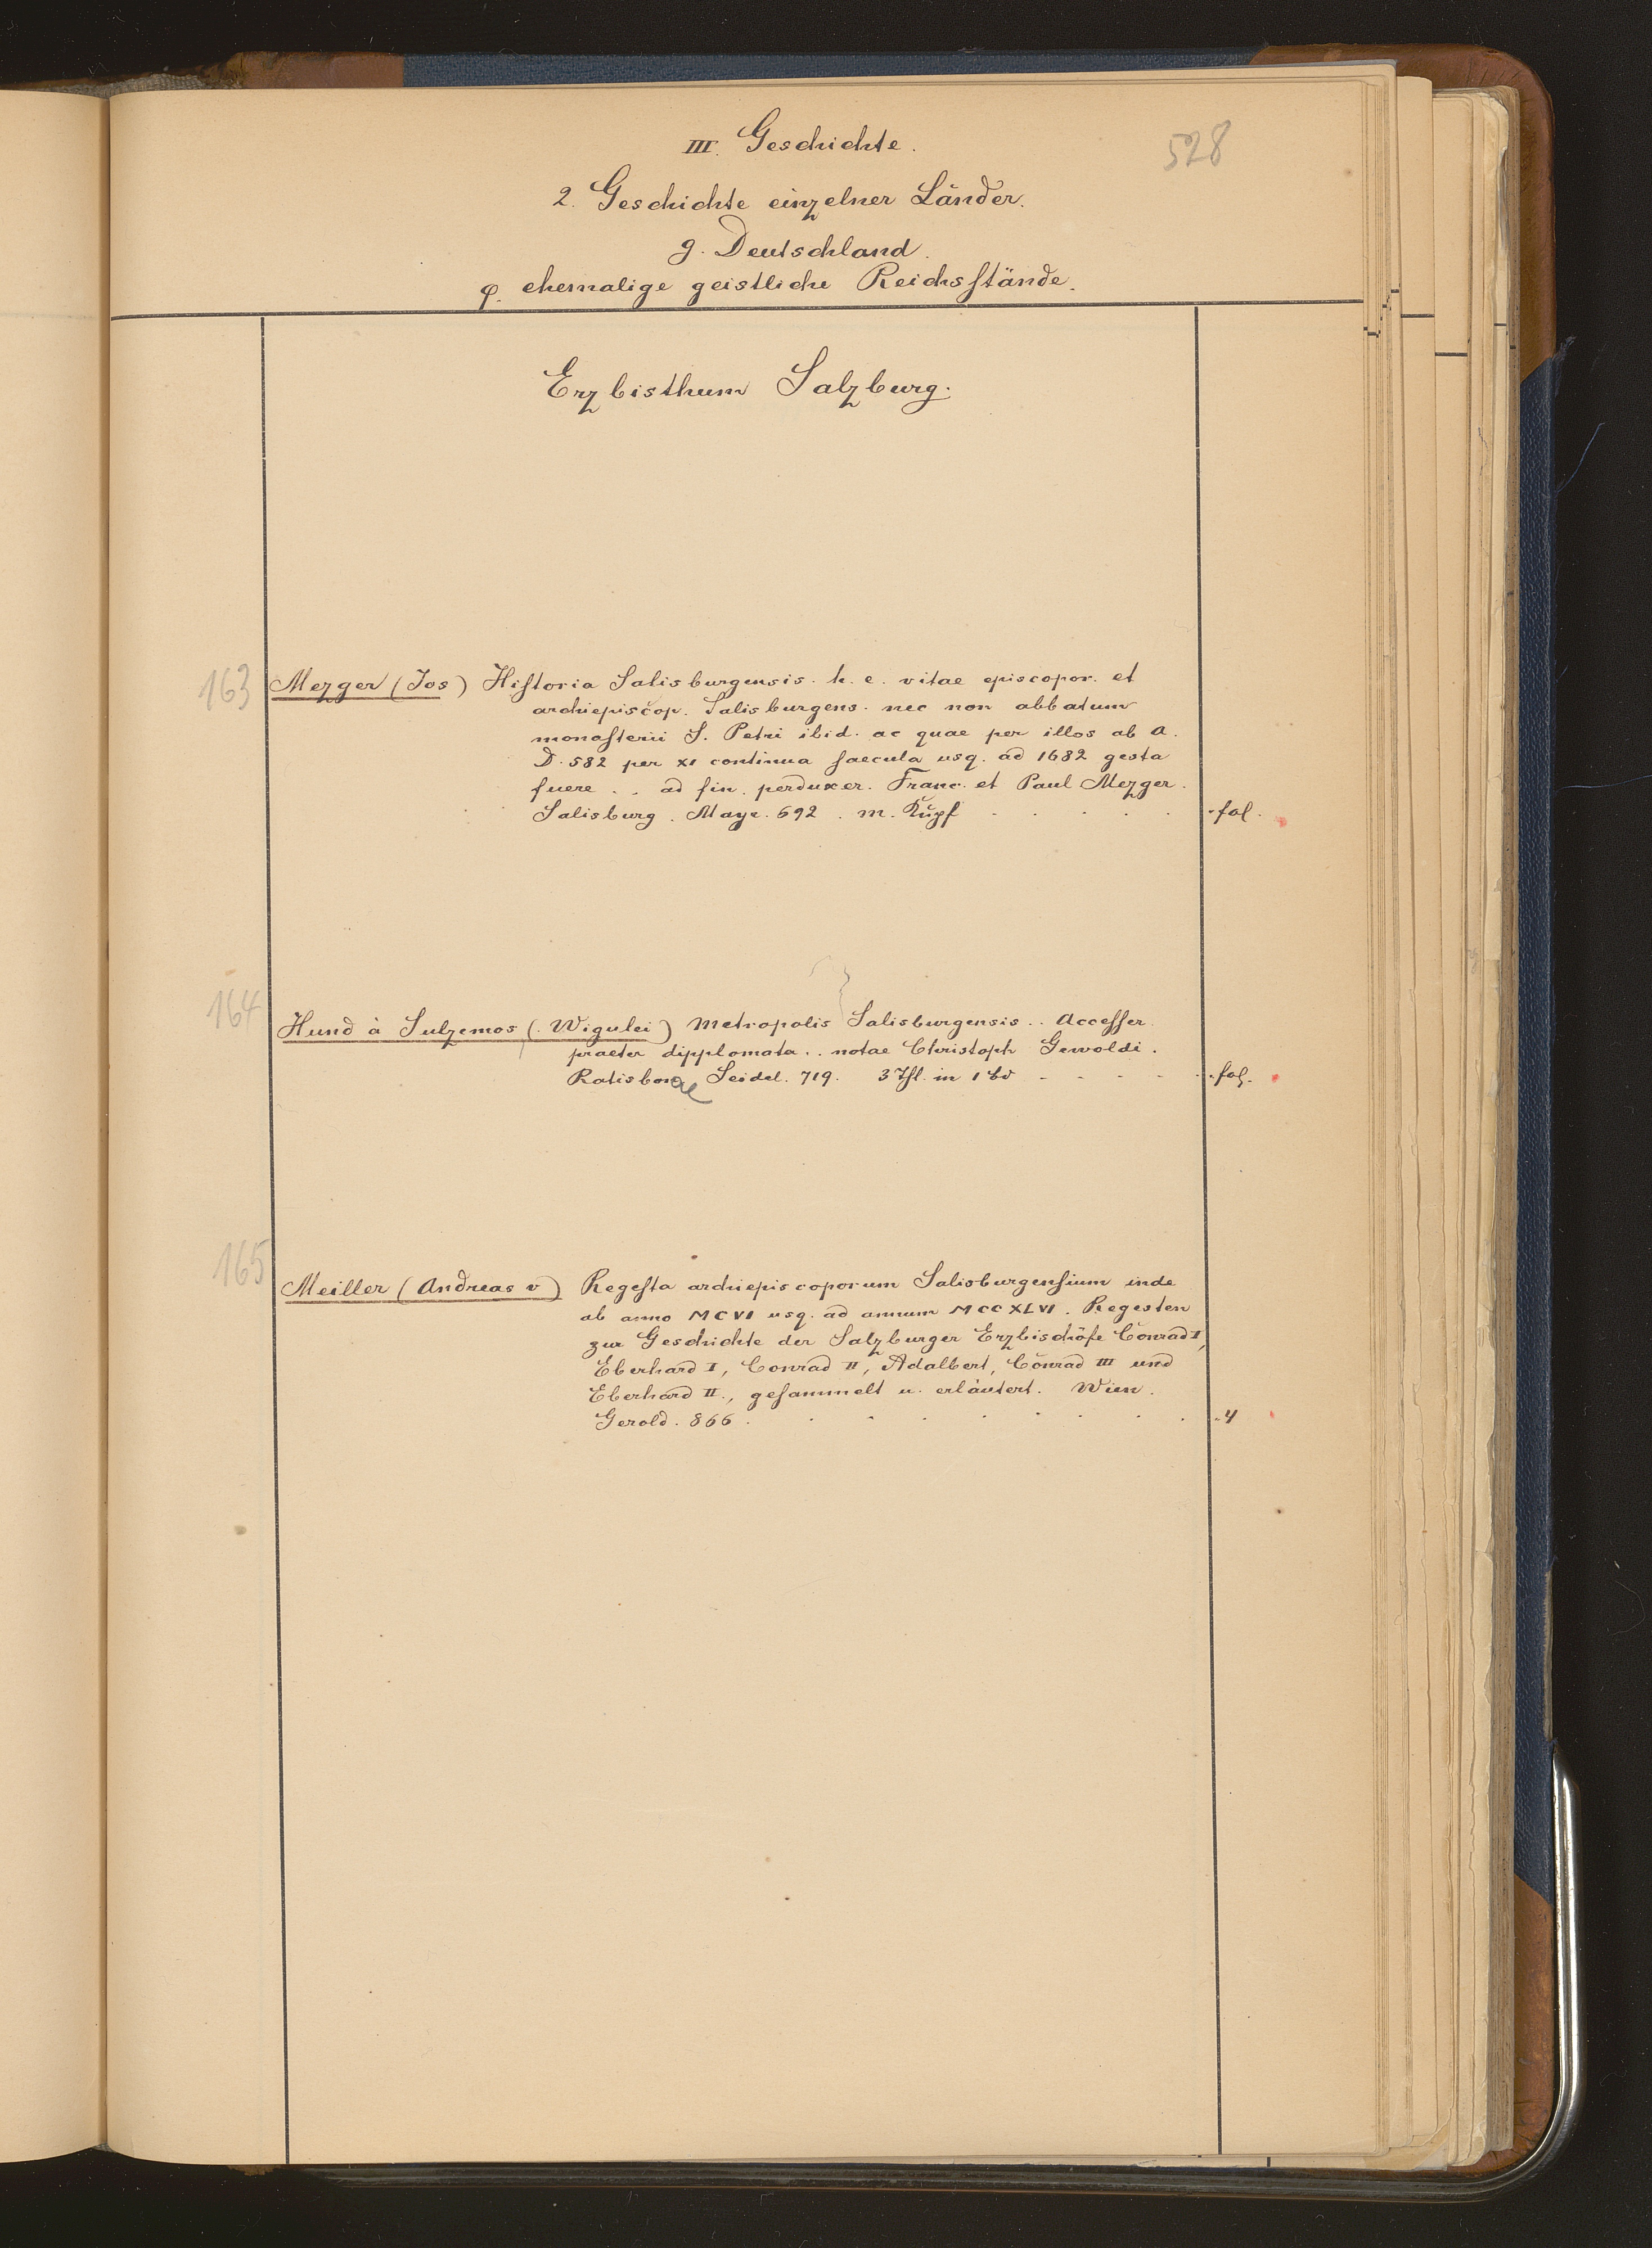 528
III. Geschichte.
2. Geschichte einzelner Länder.
g. Deutschland.
φ. ehemalige geistliche Reichsstände.
Erzbisthum Salzburg.
163 Mezger (Jos) Historia Salisburgensis. h. e. vitae episcopor. et
archiepiscop. Salisburgens. nec non abbatum
monasterii S. Petri ibid. ac quae per illos ab A.
D. 582 per XI continua saecula usq. ad 1682 gesta
fuere . . ad fin. perduxer. Franc. et Paul Mezger.
Salisburg. Mayr. 692. m. Kupf . . . . . fol.
164 Hund à Sulzemos (Wigulei) Metropolis Salisburgensis .. Accesser.
praeter dipplomata .. notae Christoph Gewoldi.
Ratisbonae Seidel. 719. 3 Thl. in 1 Bd - - - - - fol.
165 Meiller (Andreas v) Regesta archiepiscoporum Salisburgensium inde
ab anno MCVI usq. ad annum MCCXLVI. Regesten
zur Geschichte der Salzburger Erzbischöfe Conrad I,
Eberhard I, Conrad II, Adalbert, Conrad III und
Eberhard II., gesammelt u. erläutert. Wien.
Gerold. 866 . . . . . . . . 4